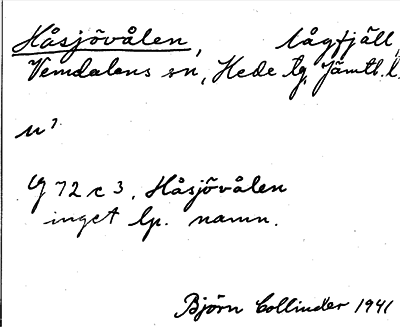 Håsjövålen, lågfjäll,
Vemdalens sn, Hede tg, Jämtl. l.
n?
G 72 c 3. Håsjövålen
inget lp. namn.
Björn Collinder 1941